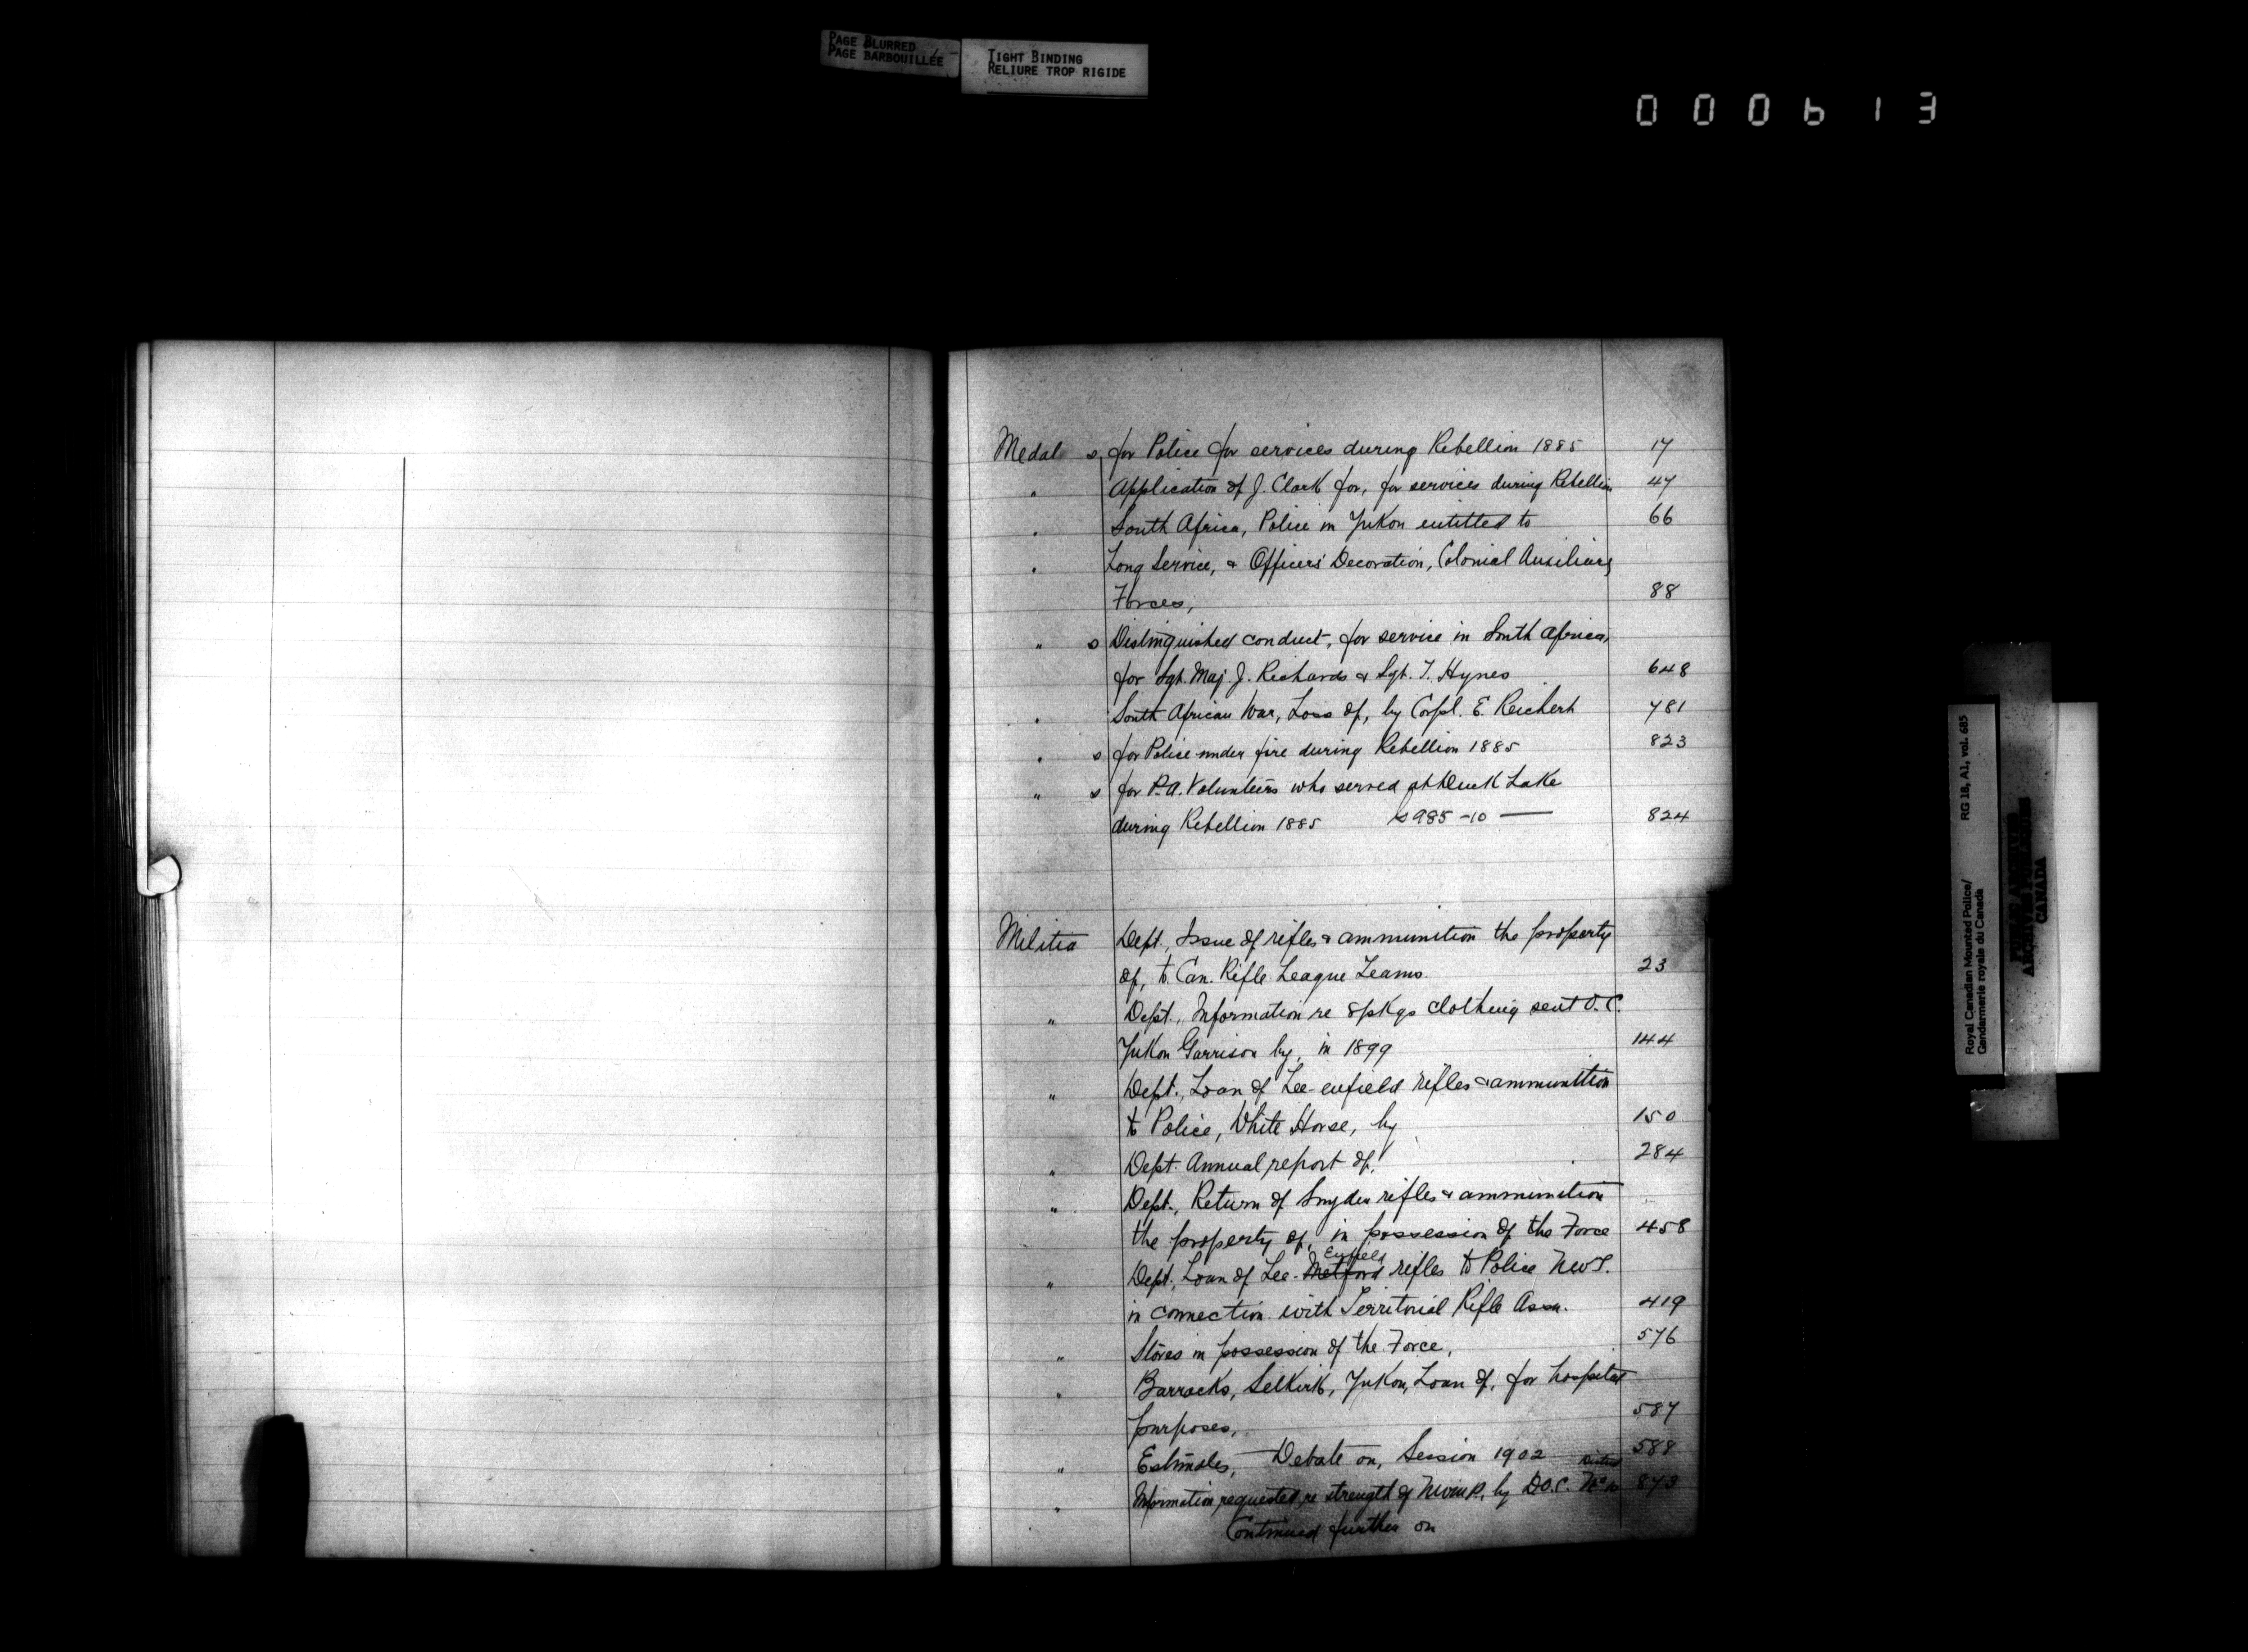 PAGE BLURRED
PAGE BARBOUILLÉE
TIGHT BINDING
RELIURE TROP RIGIDE
000613
Medal s, for Police for services during Rebellion 1885 17
" Application of J. Clark for, for services during Rebellion 47
" South Africa, Police in Yukon entitled to 66
" Long Service, & Officers' Decoration, Colonial Auxiliary
Forces, 88
" s Distinguished conduct, for service in South Africa,
for Sgt. Maj. J. Richards & Sgt. T. Hynes 648
" South African War, Loss of, by Corpl. E. Reichert 781
" s for Police under fire during Rebellion 1885 823
" s for P.A. Volunteers who served at Duck Lake
during Rebellion 1885 985-10 — 824
Militia Dept., Issue of rifles & ammunition the property
of, to Can. Rifle League Teams. 23
" Dept., Information re 8 pkgs clothing sent O.C.
Yukon Garrison by, in 1899 144
" Dept., Loan of Lee-enfield rifles & ammunition
to Police, White Horse, by 150
" Dept. Annual report of, 284
" Dept., Return of Snyder rifles & ammunition
the property of, in possession of the Force 458
Enfield
" Dept., Loan of Lee-Metford rifles to Police NWT.
in connection with Territorial Rifle Assn. 419
" Stores in possession of the Force, 576
" Barracks, Selkirk, Yukon, Loan of, for hospital
purposes, 587
" Estimates, Debate on, Session 1902 588
District
" Information requested re strength of NWMP, by D.O.C. No 10 873
Continued further on
Royal Canadian Mounted Police/
Gendarmerie royale du Canada
RG 18, A1, vol. 685
ARCHIVES
CANADA